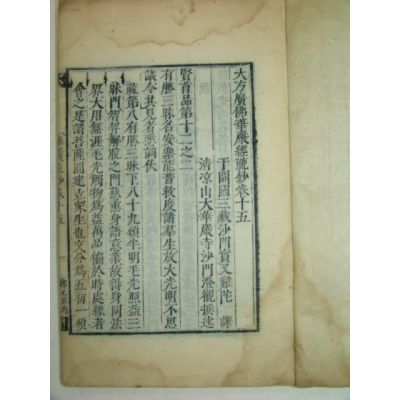 大方廣佛華嚴經疏鈔卷十五
于闐國三藏沙門實叉難陀 譯
清涼山大華嚴寺沙門澄觀撰述
賢首品第十二之二
有勝三昧名安樂能普救度諸羣生放大光明不思
議令其見者悉調伏
藏第八有勝三昧下八十九頌半明毛光照益三
昧門智智解脫之門蘊兼身語意業故得身同法
界大用無涯毛光觸物為益萬品徧於時處緣者
會之是謂菩薩開建立衆生也文分為五初一頌
卷十五